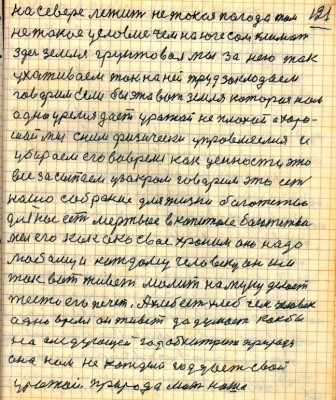 121
на севере лежит не такая погода там
не такое условие чем на юге сам климат
здес земля грунтовая мы за нею так
ухаживаем так на ней труд закладаем
говорим если бы эта вот земля которая нам
одно время дает урожай не плохой а хоро-
шой мы с ним физически управляемся и
убираем его вовремя как ценность, это
все засыпаем у закрома говорим это есть
наше собрание для жизни богатство
для нас ест мертвое в капитале богатства
мы его как око свое храним оно надо
любому и каждому человеку он им
так вот живет молит на муку делает
тесто его печет. А хлбест хлеб чем человек
одно время он живет да думает как бы
на следующей год обхитрит природу
она нам не каждый год дует свой
урожай природа мат наша